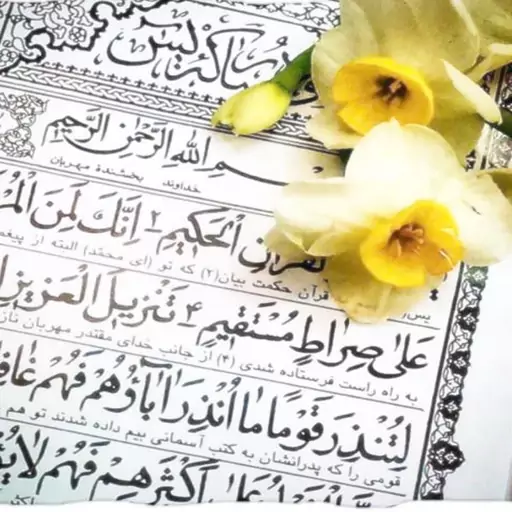 مباركه يس
بِسْمِ اللهِ الرَّحْمٰنِ الرَّحِيمِ
خداوند بخشندهٔ مهربان
الْقُرْآنِ الْحَكِيمِ ٢ اِنَّكَ لَمِنَ
قرآن حکمت بیان(۲) که تو (ای محمّد) البته از
عَلىٰ صِرَاطٍ مُسْتَقِيمٍ ٤ تَنْزِيلَ الْعَزِيزِ
به راه راست فرستاده شدی (۴) از جانب خدای مقتدر مهربان
لِتُنْذِرَ قَوْماً مٰا اُنْذِرَ اٰبٰاؤُهُمْ فَهُمْ
قومی را که پدرانشان به کتب آسمانی بیم داده شدند تو هم
عَلىٰ اَكْثَرِهِمْ فَهُمْ لٰا